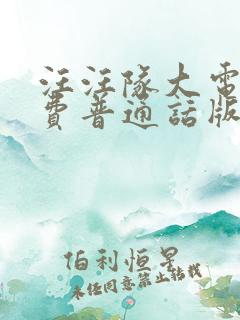 汪汪队大電
費普通話版
伯利恒星
未经同意禁止转载